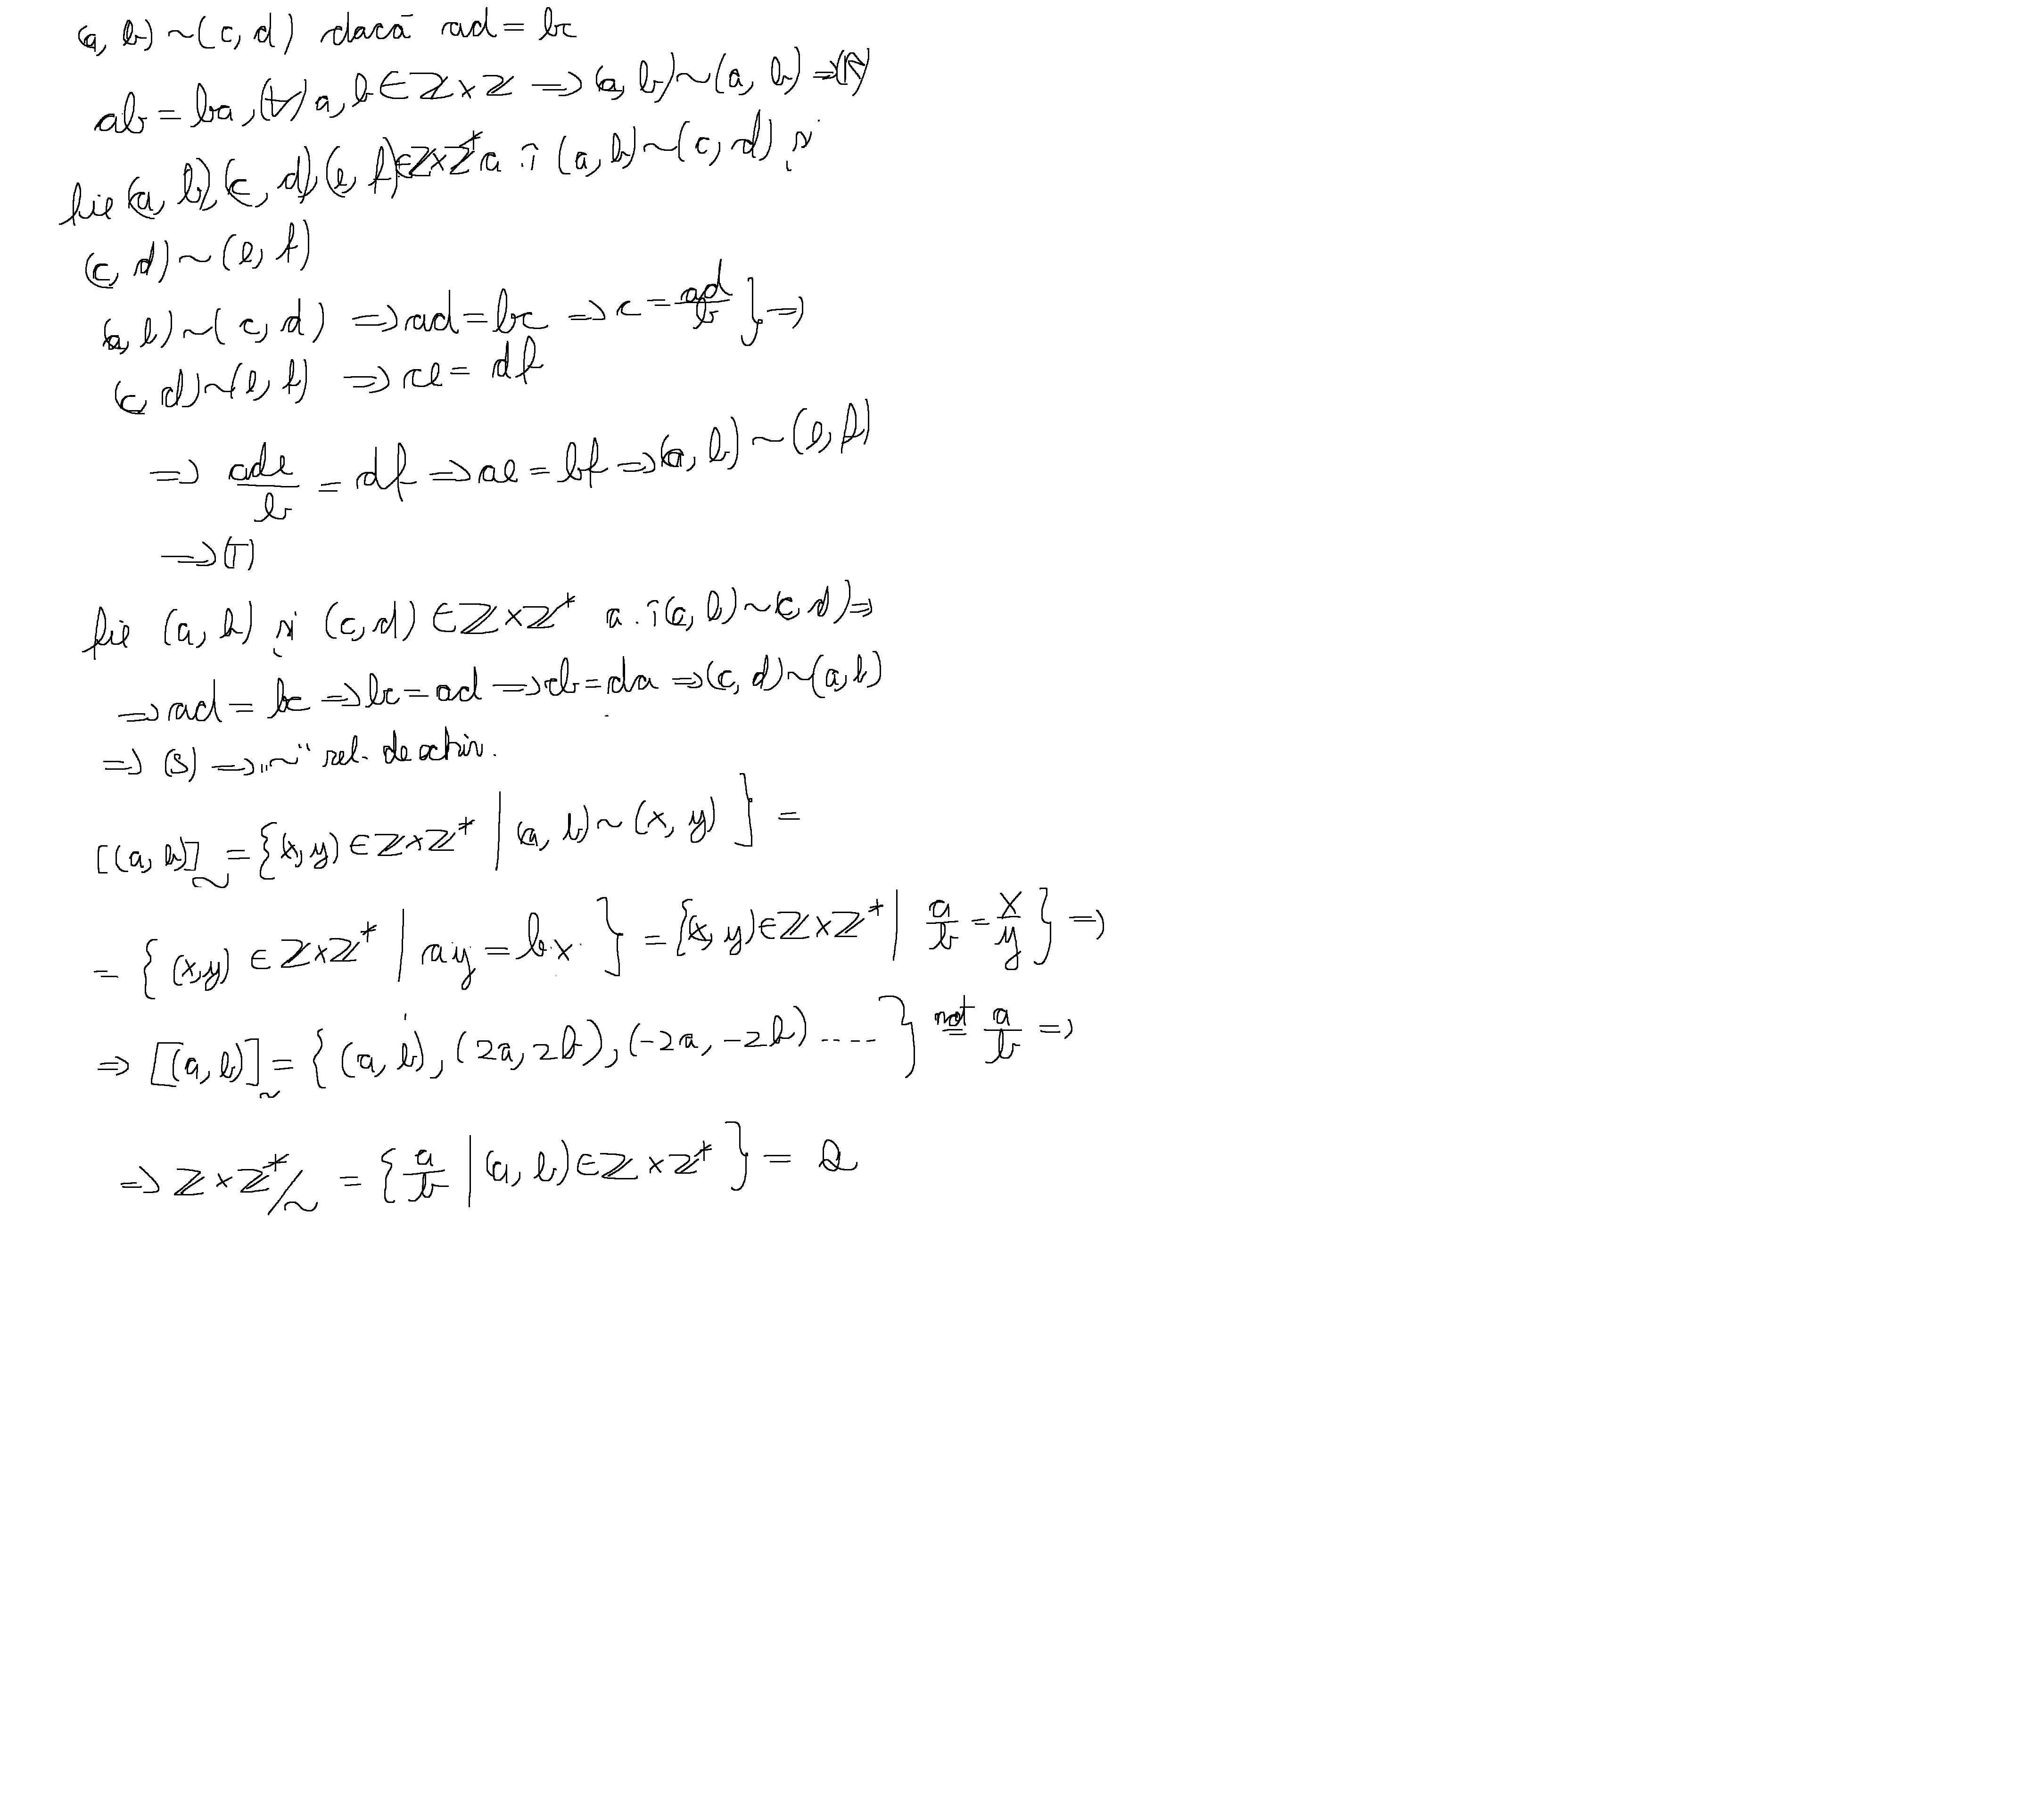 (a, b) ~ (c, d) dacă ad = bc
ab = ba, (∀) a, b ∈ Z × Z ⇒ (a, b) ~ (a, b) ⇒ (R)
fie (a, b), (c, d), (e, f) ∈ Z × Z* a. î (a, b) ~ (c, d) și
(c, d) ~ (e, f)
(a, b) ~ (c, d) ⇒ ad = bc ⇒ c = ad/b } ⇒
(c, d) ~ (e, f) ⇒ ce = df
⇒ ade/b = df ⇒ ae = bf ⇒ (a, b) ~ (e, f)
⇒ (T)
fie (a, b) și (c, d) ∈ Z × Z* a. î (a, b) ~ (c, d) ⇒
⇒ ad = bc ⇒ bc = ad ⇒ cb = da ⇒ (c, d) ~ (a, b)
⇒ (S) ⇒ „~" rel. de echiv.
[(a, b)]~ = {(x, y) ∈ Z × Z* | (a, b) ~ (x, y)} =
= {(x, y) ∈ Z × Z* | ay = b·x} = {(x, y) ∈ Z × Z* | a/b = x/y} ⇒
⇒ [(a, b)]~ = {(a, b), (2a, 2b), (-2a, -2b) ....} not= a/b ⇒
⇒ Z × Z*/~ = {a/b | (a, b) ∈ Z × Z*} = Q